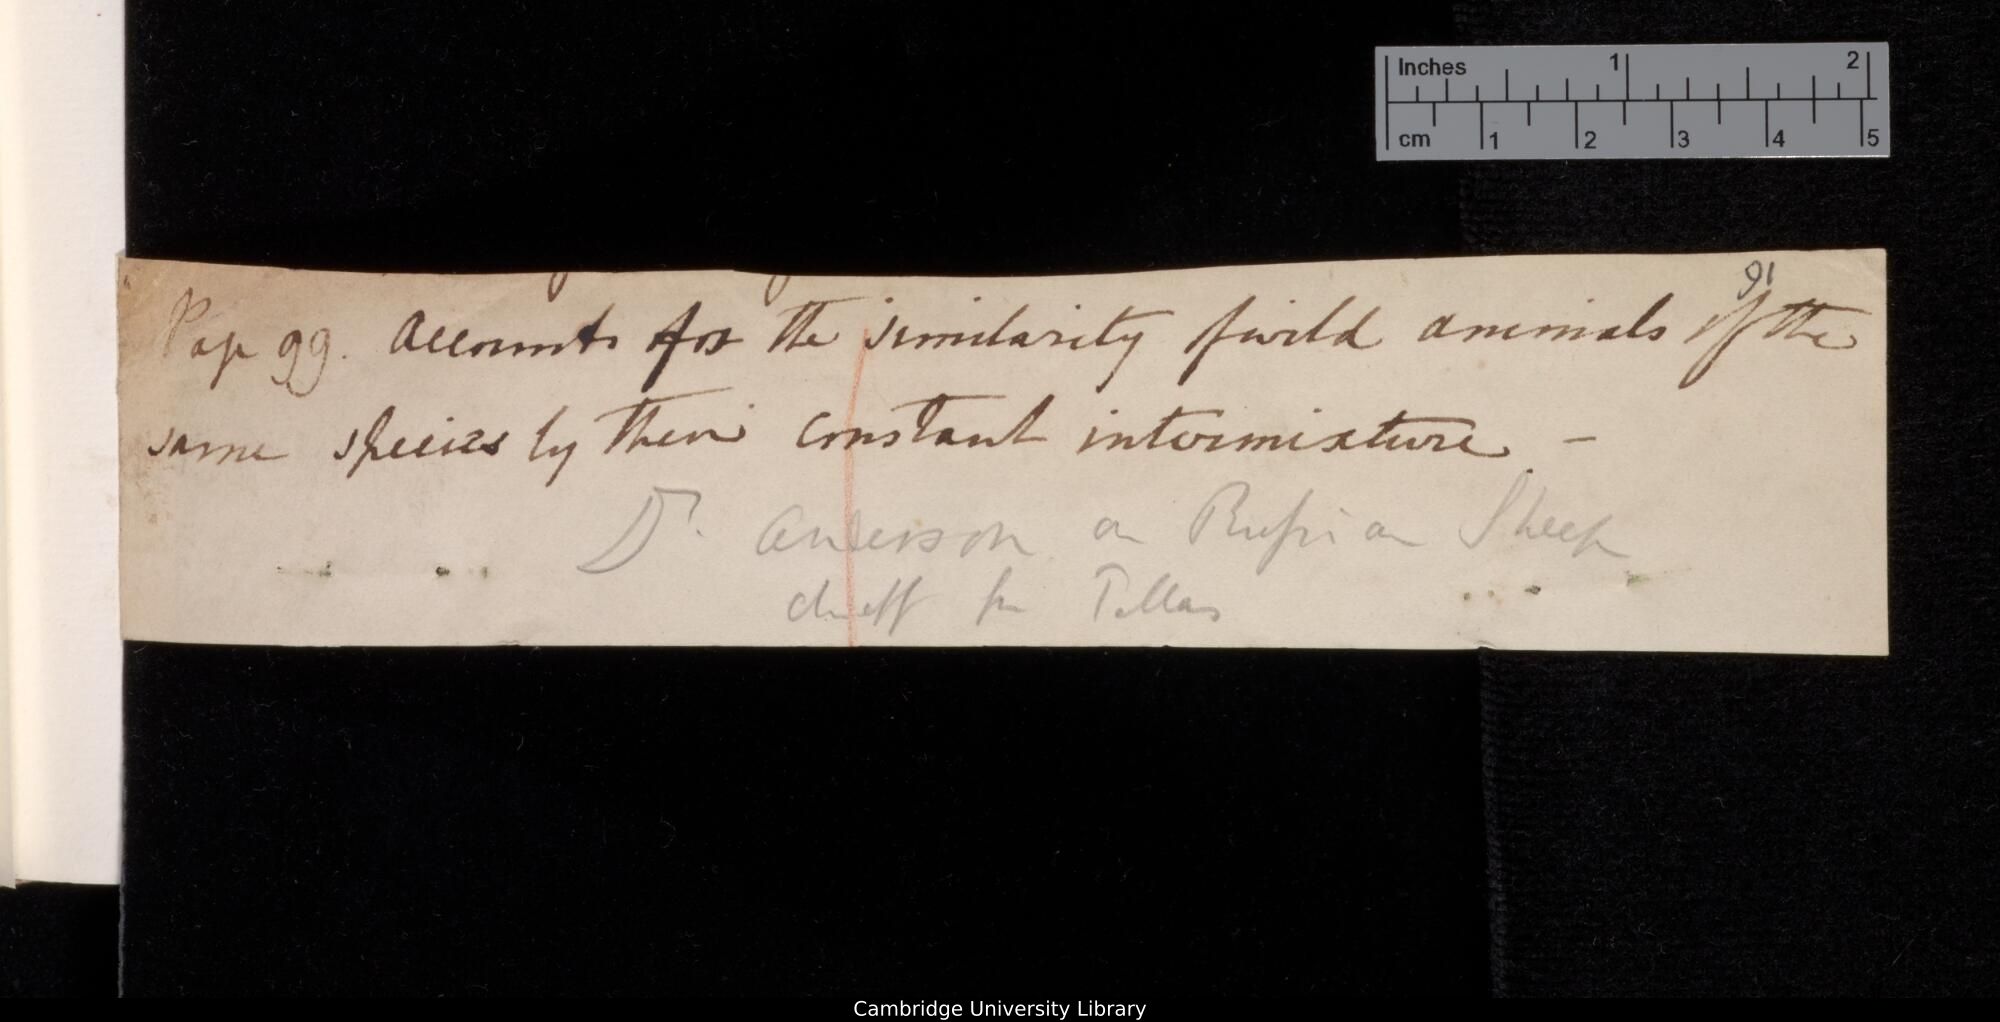 Inches 1 2
cm 1 2 3 4 5
91
Page 99. Accounts for the similarity of wild animals of the
same species by their constant intermixture –
Dr. Anderson on Russian Sheep
chiefly fr Pallas
Cambridge University Library